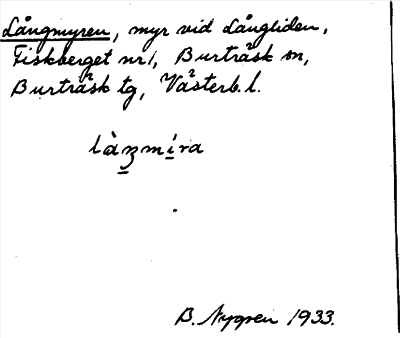 Långmyren, myr vid Långliden,
Fiskberget nr 1, Burträsk sn,
Burträsk tg, Västerb. l.
B. Nygren 1933.